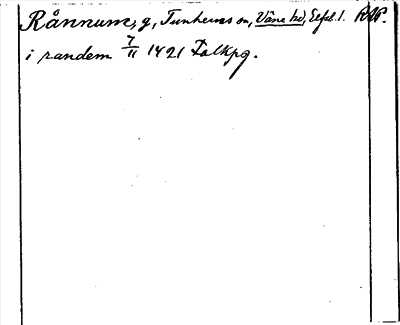 Rånnum, g, Tunhems sn, Väne hd, Elfsb. l. RAP.
i randem 7/11 1421 Falkpg.